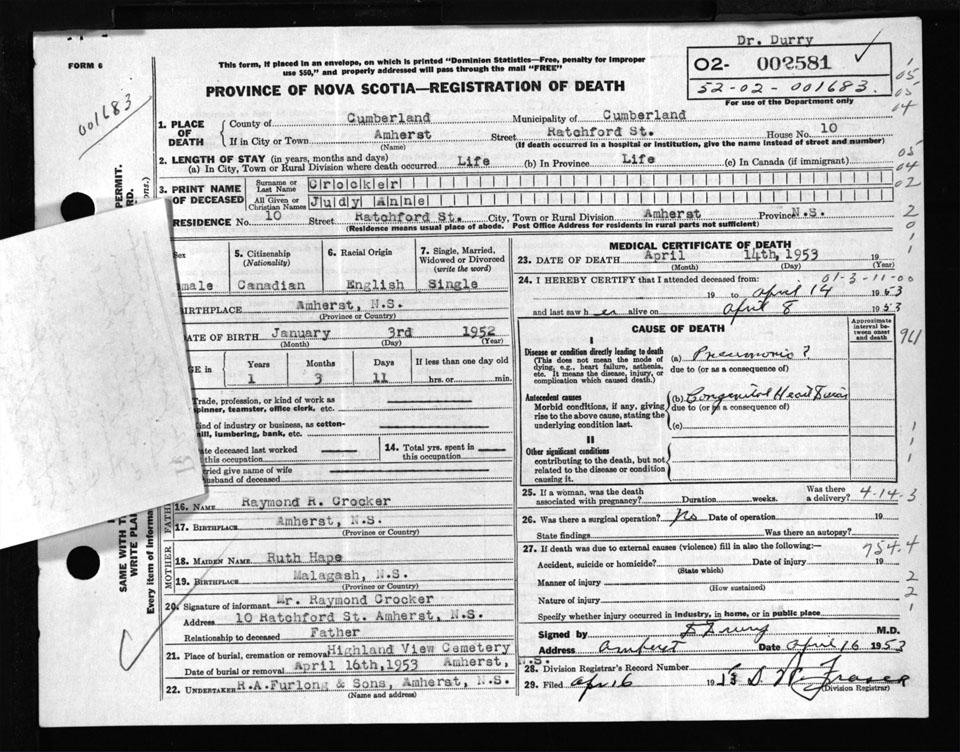 Dr. Durry
FORM 6
This form, if placed in an envelope, on which is printed "Dominion Statistics—Free, penalty for improper
use $50," and properly addressed will pass through the mail "FREE"
02- 002581
52-02-001683.
For use of the Department only
PROVINCE OF NOVA SCOTIA—REGISTRATION OF DEATH
001683
1. PLACE OF DEATH
County of Cumberland Municipality of Cumberland
If in City or Town Amherst Street Ratchford St. House No. 10
(Name) (If death occurred in a hospital or institution, give the name instead of street and number)
2. LENGTH OF STAY (in years, months and days)
(a) In City, Town or Rural Division where death occurred Life (b) In Province Life (c) In Canada (if immigrant)
3. PRINT NAME OF DECEASED
Surname or Last Name Crocker
All Given or Christian Names Judy Anne
RESIDENCE No. 10 Street Ratchford St. City, Town or Rural Division Amherst Province N.S.
(Residence means usual place of abode. Post Office Address for residents in rural parts not sufficient)
Sex male
5. Citizenship (Nationality) Canadian
6. Racial Origin English
7. Single, Married, Widowed or Divorced (write the word) Single
BIRTHPLACE Amherst, N.S.
(Province or Country)
DATE OF BIRTH January 3rd 1952
(Month) (Day) (Year)
GE in Years 1 Months 3 Days 11 If less than one day old hrs. or min.
Trade, profession, or kind of work as
spinner, teamster, office clerk, etc.
ind of industry or business, as cotton-
ill, lumbering, bank, etc.
ate deceased last worked
this occupation
14. Total yrs. spent in this occupation
rried give name of wife
usband of deceased
16. NAME Raymond R. Crocker
17. BIRTHPLACE Amherst, N.S.
(Province or Country)
FATH
MOTHER
18. MAIDEN NAME Ruth Hape
19. BIRTHPLACE Malagash, N.S.
(Province or Country)
20. Signature of informant Mr. Raymond Crocker
Address 10 Ratchford St. Amherst, N.S.
Relationship to deceased Father
21. Place of burial, cremation or removal Highland View Cemetery
Date of burial or removal April 16th, 1953 Amherst, N.S.
22. UNDERTAKER R.A.Furlong & Sons, Amherst, N.S.
(Name and address)
MEDICAL CERTIFICATE OF DEATH
23. DATE OF DEATH April 14th, 1953 19
(Month) (Day) (Year)
24. I HEREBY CERTIFY that I attended deceased from: 01-3-11-00
19 to April 14 1953
and last saw her alive on April 8 1953
CAUSE OF DEATH
Approximate interval between onset and death
I
Disease or condition directly leading to death
(This does not mean the mode of
dying, e.g., heart failure, asthenia,
etc. It means the disease, injury, or
complication which caused death.)
(a) Pneumonia?
due to (or as a consequence of)
Antecedent causes
Morbid conditions, if any, giving
rise to the above cause, stating the
underlying condition last.
(b) Congenital Heart
due to (or as a consequence of)
(c)
II
Other significant conditions
contributing to the death, but not
related to the disease or condition
causing it.
25. If a woman, was the death associated with pregnancy? Duration weeks. Was there a delivery? 4-14-3
26. Was there a surgical operation? No Date of operation 19
State findings Was there an autopsy?
27. If death was due to external causes (violence) fill in also the following:— 754.4
Accident, suicide or homicide? Date of injury 19
(State which)
Manner of injury
(How sustained)
Nature of injury
Specify whether injury occurred in industry, in home, or in public place
Signed by M.D.
Address Amherst Date April 16 1953
28. Division Registrar's Record Number
29. Filed Apr 16 19 Fraser
(Division Registrar)
PERMIT.
SAME WITH T
WRITE PLAI
Every item of Informa